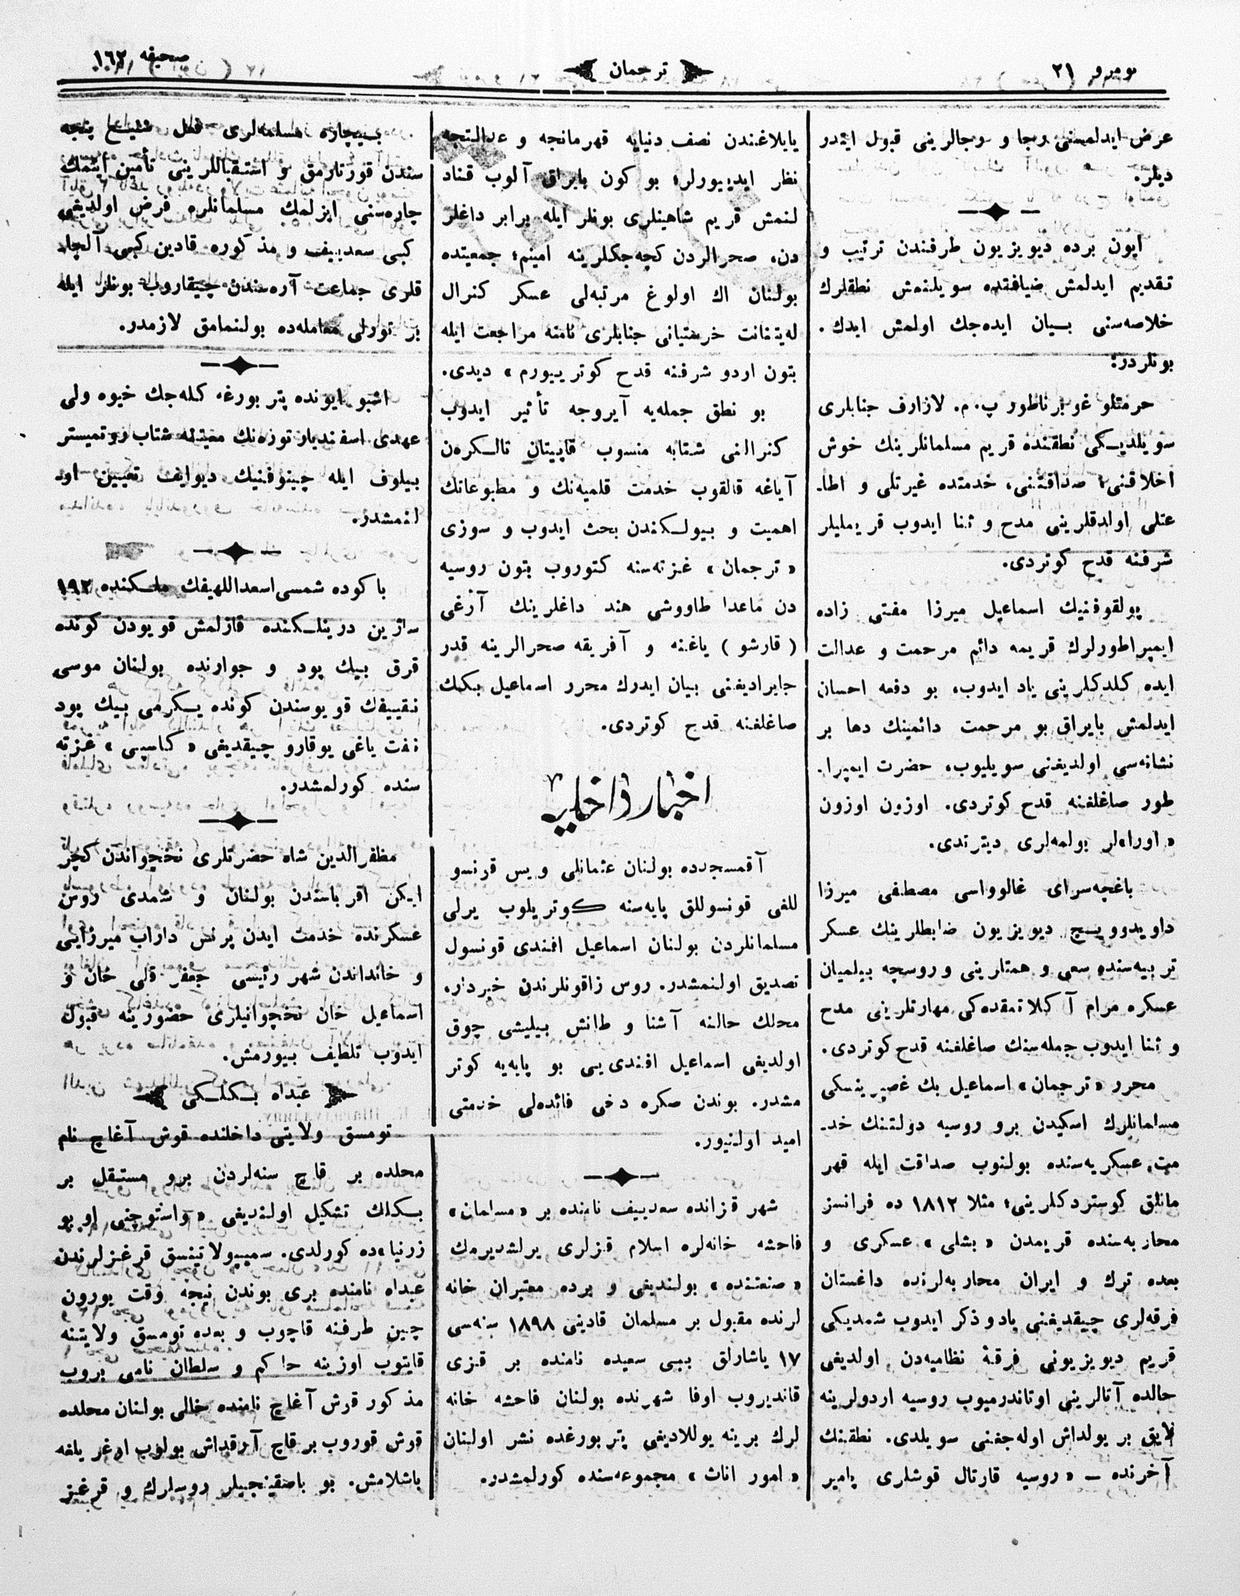 نومرو ٢١
ترجمان
صحیفه ١٦٢
عرض ایدلمسنی رجا و رجالرینی قبول ایتدر
دیلر.
اپون برده دیویزیون طرفندن ترتیب و
تقدیم ایدلمش ضیافتده سویلنمش نطقلرك
خلاصه‌سنی بیان ایده‌جك اولمش ایدك.
بونلردر:
حرمتلو غوبرناطور پ. م. لازارف جنابلری
سویلدیكی نطقنده قریم مسلمانلرینك خوش
اخلاقنی، صداقتنی، خدمتده غیرتلی و اطا-
عتلی اولدقلرینی مدح و ثنا ایدوب قریملیلر
شرفنه قدح كوتردی.
پولقوفنیك اسماعیل میرزا مفتی زاده
ایمپراطورلرك قریمه دائم مرحمت و عدالت
ایده كلدكلرینی یاد ایدوب، بو دفعه احسان
ایدلمش بایراق بو مرحمت دائمینك دها بر
نشانه‌سی اولدیغنی سویلیوب، حضرت ایمپرا.
طور صاغلغنه قدح كوتردی. اوزین اوزون
« اورا»لر بولمه‌لری دیترتدی.
باغچه‌سرای غالوواسی مصطفی میرزا
داویدوویچ دیویزیون ضابطلرینك عسكر
تربیه‌سنده سعی و همتارینی و روسچه بیلمیان
عسكره مرام آكلاتمقده‌كی مهارتلرینی مدح
و ثنا ایدوب جمله‌سنك صاغلغنه قدح كوتردی.
محرر «ترجمان» اسماعیل بك غصپرینسكی
مسلمانلرك اسكیدن برو روسیه دولتنك خد-
مت عسكریه‌سنده بولنوب صداقت ایله قهر
مانلق كوستردكلرینی؛ مثلا ١٨١٢ ده فرانسز
محاربه‌سنده قریمدن «بشلی» عسكری و
بعده ترك و ایران محاربه‌لرنده داغستان
فرقه‌لری چیقدیغنی یاد و ذكر ایدوب شمدیكی
قریم دیویزیونی فرقهٔ نظامیه‌دن اولدیغی
حالده آتالرینی اوتاندرمیوب روسیه اردولرینه
لایق بر یولداش اوله‌جغنی سویلدی. نطقینك
آخرنده — «روسیه قارتال قوشلری پامیر
یایلاغندن نصف دنیایه قهرمانجه و عدالتجه
نظر ایدییورلر؛ بو كون بایراق آلوب قناد
لنمش قریم شاهینلری بونلر ایله برابر داغلر
دن، صحرالردن كچه‌جكلرینه امینم؛ جمعیتده
بولنان اك اولوغ مرتبه‌لی عسكر كنرال
له‌یتنانت خرستیانی جنابلری نامنه مراجعت ایله
بتون اردو شرفنه قدح كوترییورم» دیدی.
بو نطق جمله‌یه آیروجه تأثیر ایدوب
كنرالنی شتابه منسوب قاپیتان تالكره‌ن
آیاغه قالقوب خدمت قلمیه‌نك و مطبوعاتك
اهمیت و بیولكندن بحث ایدوب و سوزی
«ترجمان» غزته‌سنه كتوروب بتون روسیه
دن ماعدا طاووشی هند داغلرینك آرغی
( قارشو ) یاغنه و آفریقه صحرالرینه قدر
جایرادیغنی بیان ایدرك محرر اسماعیل بكك
صاغلغنه قدح كوتردی.
اخبار داخلیه
آقمسجدده بولنان عثمانلی ویس قونسو
للغی قونسوللق پایه‌سنه كوتریلوب یرلی
مسلمانلردن بولنان اسماعیل افندی قونسول
تصدیق اولنمشدر. روس زاقونلرندن خبردار،
محلك حالنه آشنا و طانش بیلیشی چوق
اولدیغی اسماعیل افندی‌یی بو پایه‌یه كوتر
مشدر. بوندن صكره دخی فائده‌لی خدمتی
امید اولنیور.
شهر قزانده سعدییف نامنده بر «مسلمان»
فاحشه خانه‌لره اسلام قزلری یرلشدیرمك
«صنعتنده» بولندیغی و برده معتبران خانه
لرنده مقبول بر مسلمان قادینی ١٨٩٨ سنه‌سی
١٧ یاشارلق بیبی سعیده نامنده بر قزی
قاندیروب اوفا شهرنده بولنان فاحشه خانه
لرك برینه یوللادیغی پتربورغده نشر اولنان
«امور اناث» مجموعه‌سنده كورلمشدر.
بیچاره مسلمه‌لری فعل شنیع پنجه
سندن قورتارمق و استقباللرینی تأمین ایتمك
چاره‌سنی ایزلمك مسلمانلره فرض اولدیغی
كبی سعدییف و مذكوره قادین كبی آلچا.
قلری جماعت آره‌سندن چیقاروب بونلر ایله
بر تورلی معامله‌ده بولنمامق لازمدر.
اشبو ایونده پتربورغه كله‌جك خیوه ولی
عهدی اسفندیار توره‌نك معیتنه شتاب روتمیستر
بیلوف ایله چینوفنیك دیوایف تعیین او
لنمشدر.
باكوده شمسی اسعداللهیفك ملكنده ١٩٢
ساژین درینلكنده قازلمش قویودن كونده
قرق بیك پود و جوارنده بولنان موسی
نقییفك قویوسندن كونده یكرمی بیك پود
نفت یاغی یوقارو چیقدیغی «كاسپی» غزته
سنده كورلمشدر.
مظفرالدین شاه حضرتلری نخچواندن كچر
ایكن اقرباسندن بولنان و شمدی روس
عسكرنده خدمت ایدن پرنس داراب میرزایی
و خانداندن شهر رئیسی جعفر قلی خان و
اسماعیل خان نخچوانیلری حضورینه قبول
ایدوب تلطیف بیورمش.
عبداه بكلكی
تومسق ولایتی داخلنده قوش آغاچ نام
محلده بر قاچ سنه‌لردن برو مستقل بر
بكلك تشكیل اولندیغی «واستوچنی اوبو
زرنیا»ده كورلدی. سمیپولاتینسق قرغزلرندن
عبداه نامنده بری بوندن نیجه وقت یورون
چین طرفنه قاچوب و بعده تومسق ولایتنه
قایتوب اوزینه حاكم و سلطان نامی بروب
مذكور قوش آغاچ نامنده خالی بولنان محلده
قوش قوروب بر قاچ آرقداش بولوب اوغریلغه
باشلامش. بو باصقینجیلر روسلرك و قرغز